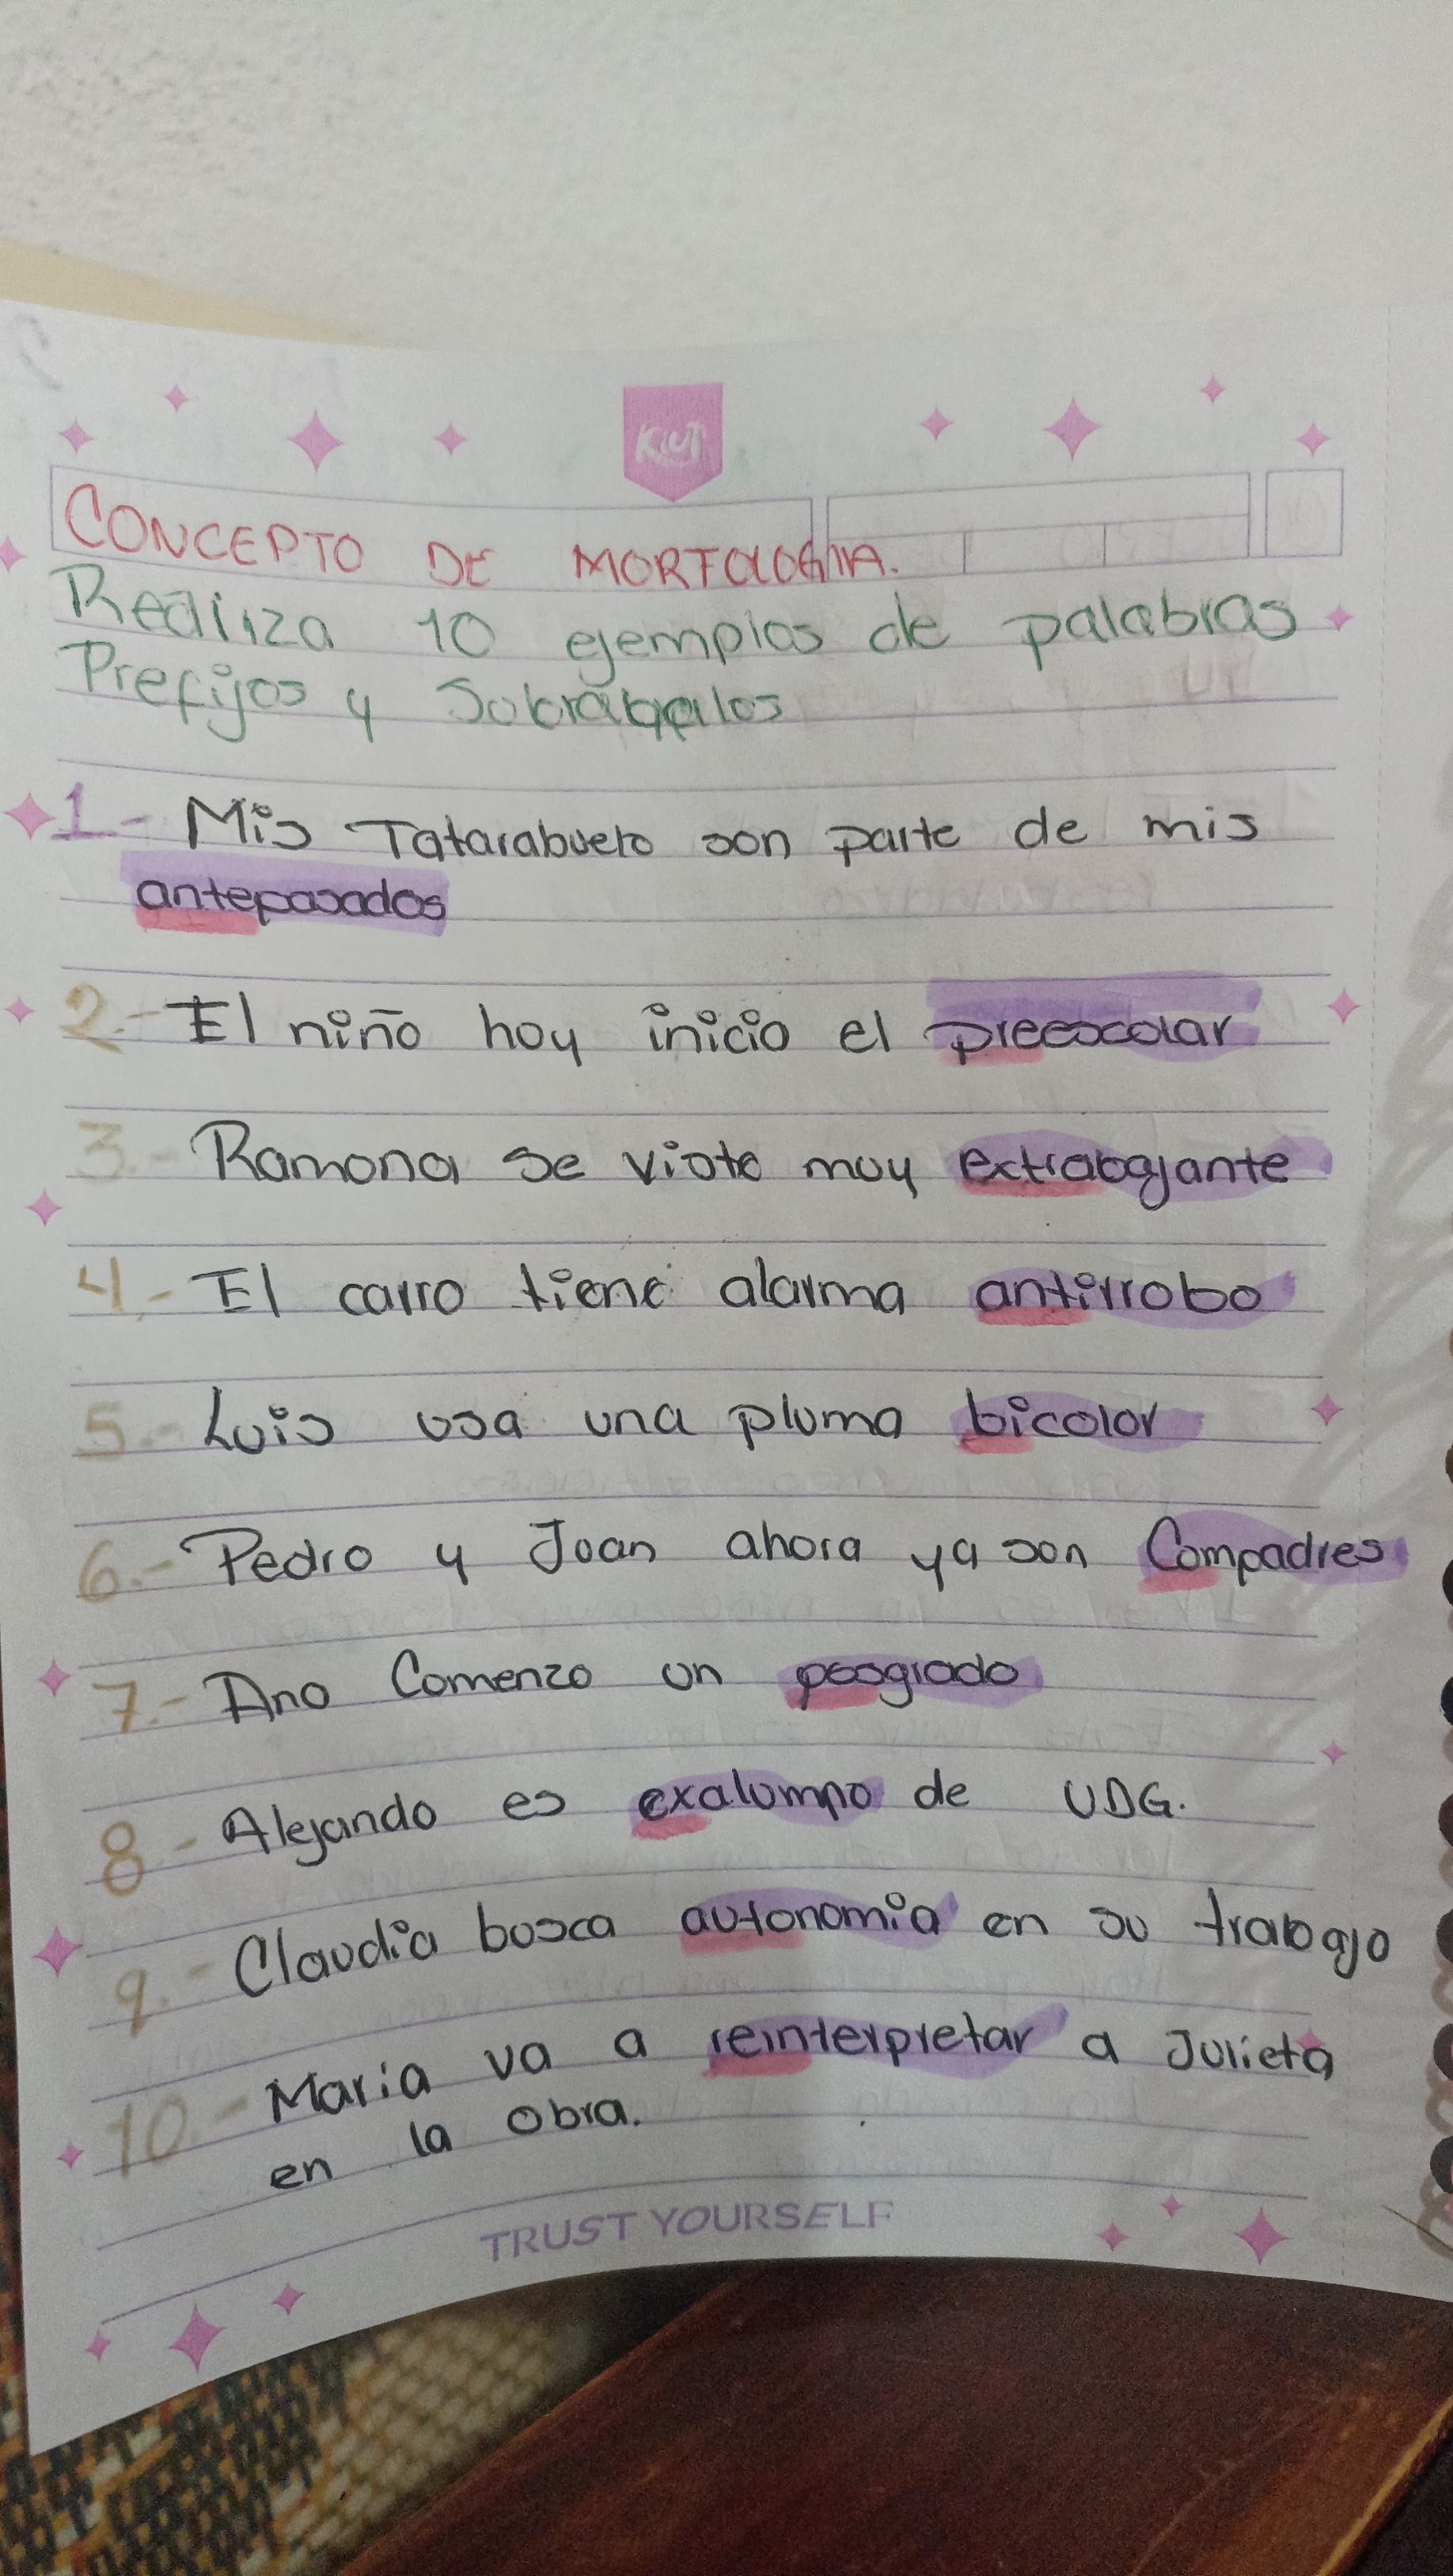 KIUT
CONCEPTO DE MORFOLOGIIA.
Realiza 10 ejemplos de palabras
Prefijos y
1.- Mis Tatarabuelo son parte de mis
antepasados
2.- El niño hoy inicio el preescolar
3.- Ramona se viste muy extrabajante
4.- El carro tiene alarma antirrobo
5.- Luis usa una pluma bicolor
6.- Pedro y Juan ahora ya son Compadres
7.- Ana Comenzo un posgrado
8.- Alejando es exalumno de UDG.
9.- Claudia busca autonomia en su trabajo
10.- Maria va a reinterpretar a Julieta
en la obra.
TRUST YOURSELF